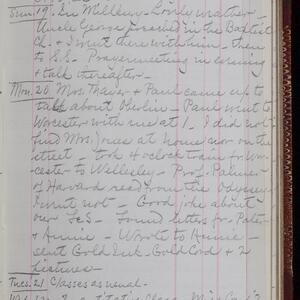 Sun. 19. In Millbury - Lovely weather -
Uncle George preached in the Baptist
Ch. & I went there with him - then
to S.S. Prayermeeting in evening
& talk thereafter -
Mon. 20 Mrs. Thayer & Paul came up to
talk about Oberlin - Paul went to
Worcester with me at 1. I did not
find Mrs. Jones at home nor on the
street - took 4 o'clock train for Wor-
cester to Wellesley - Prof. Palmer
of Harvard read from the Odyssey
I went not - Good joke about
our - Found letters for
& Annie - Wrote to Annie -
sent Gold Ink - Gold Cord & 2
Tues. 21 Classes as usual -